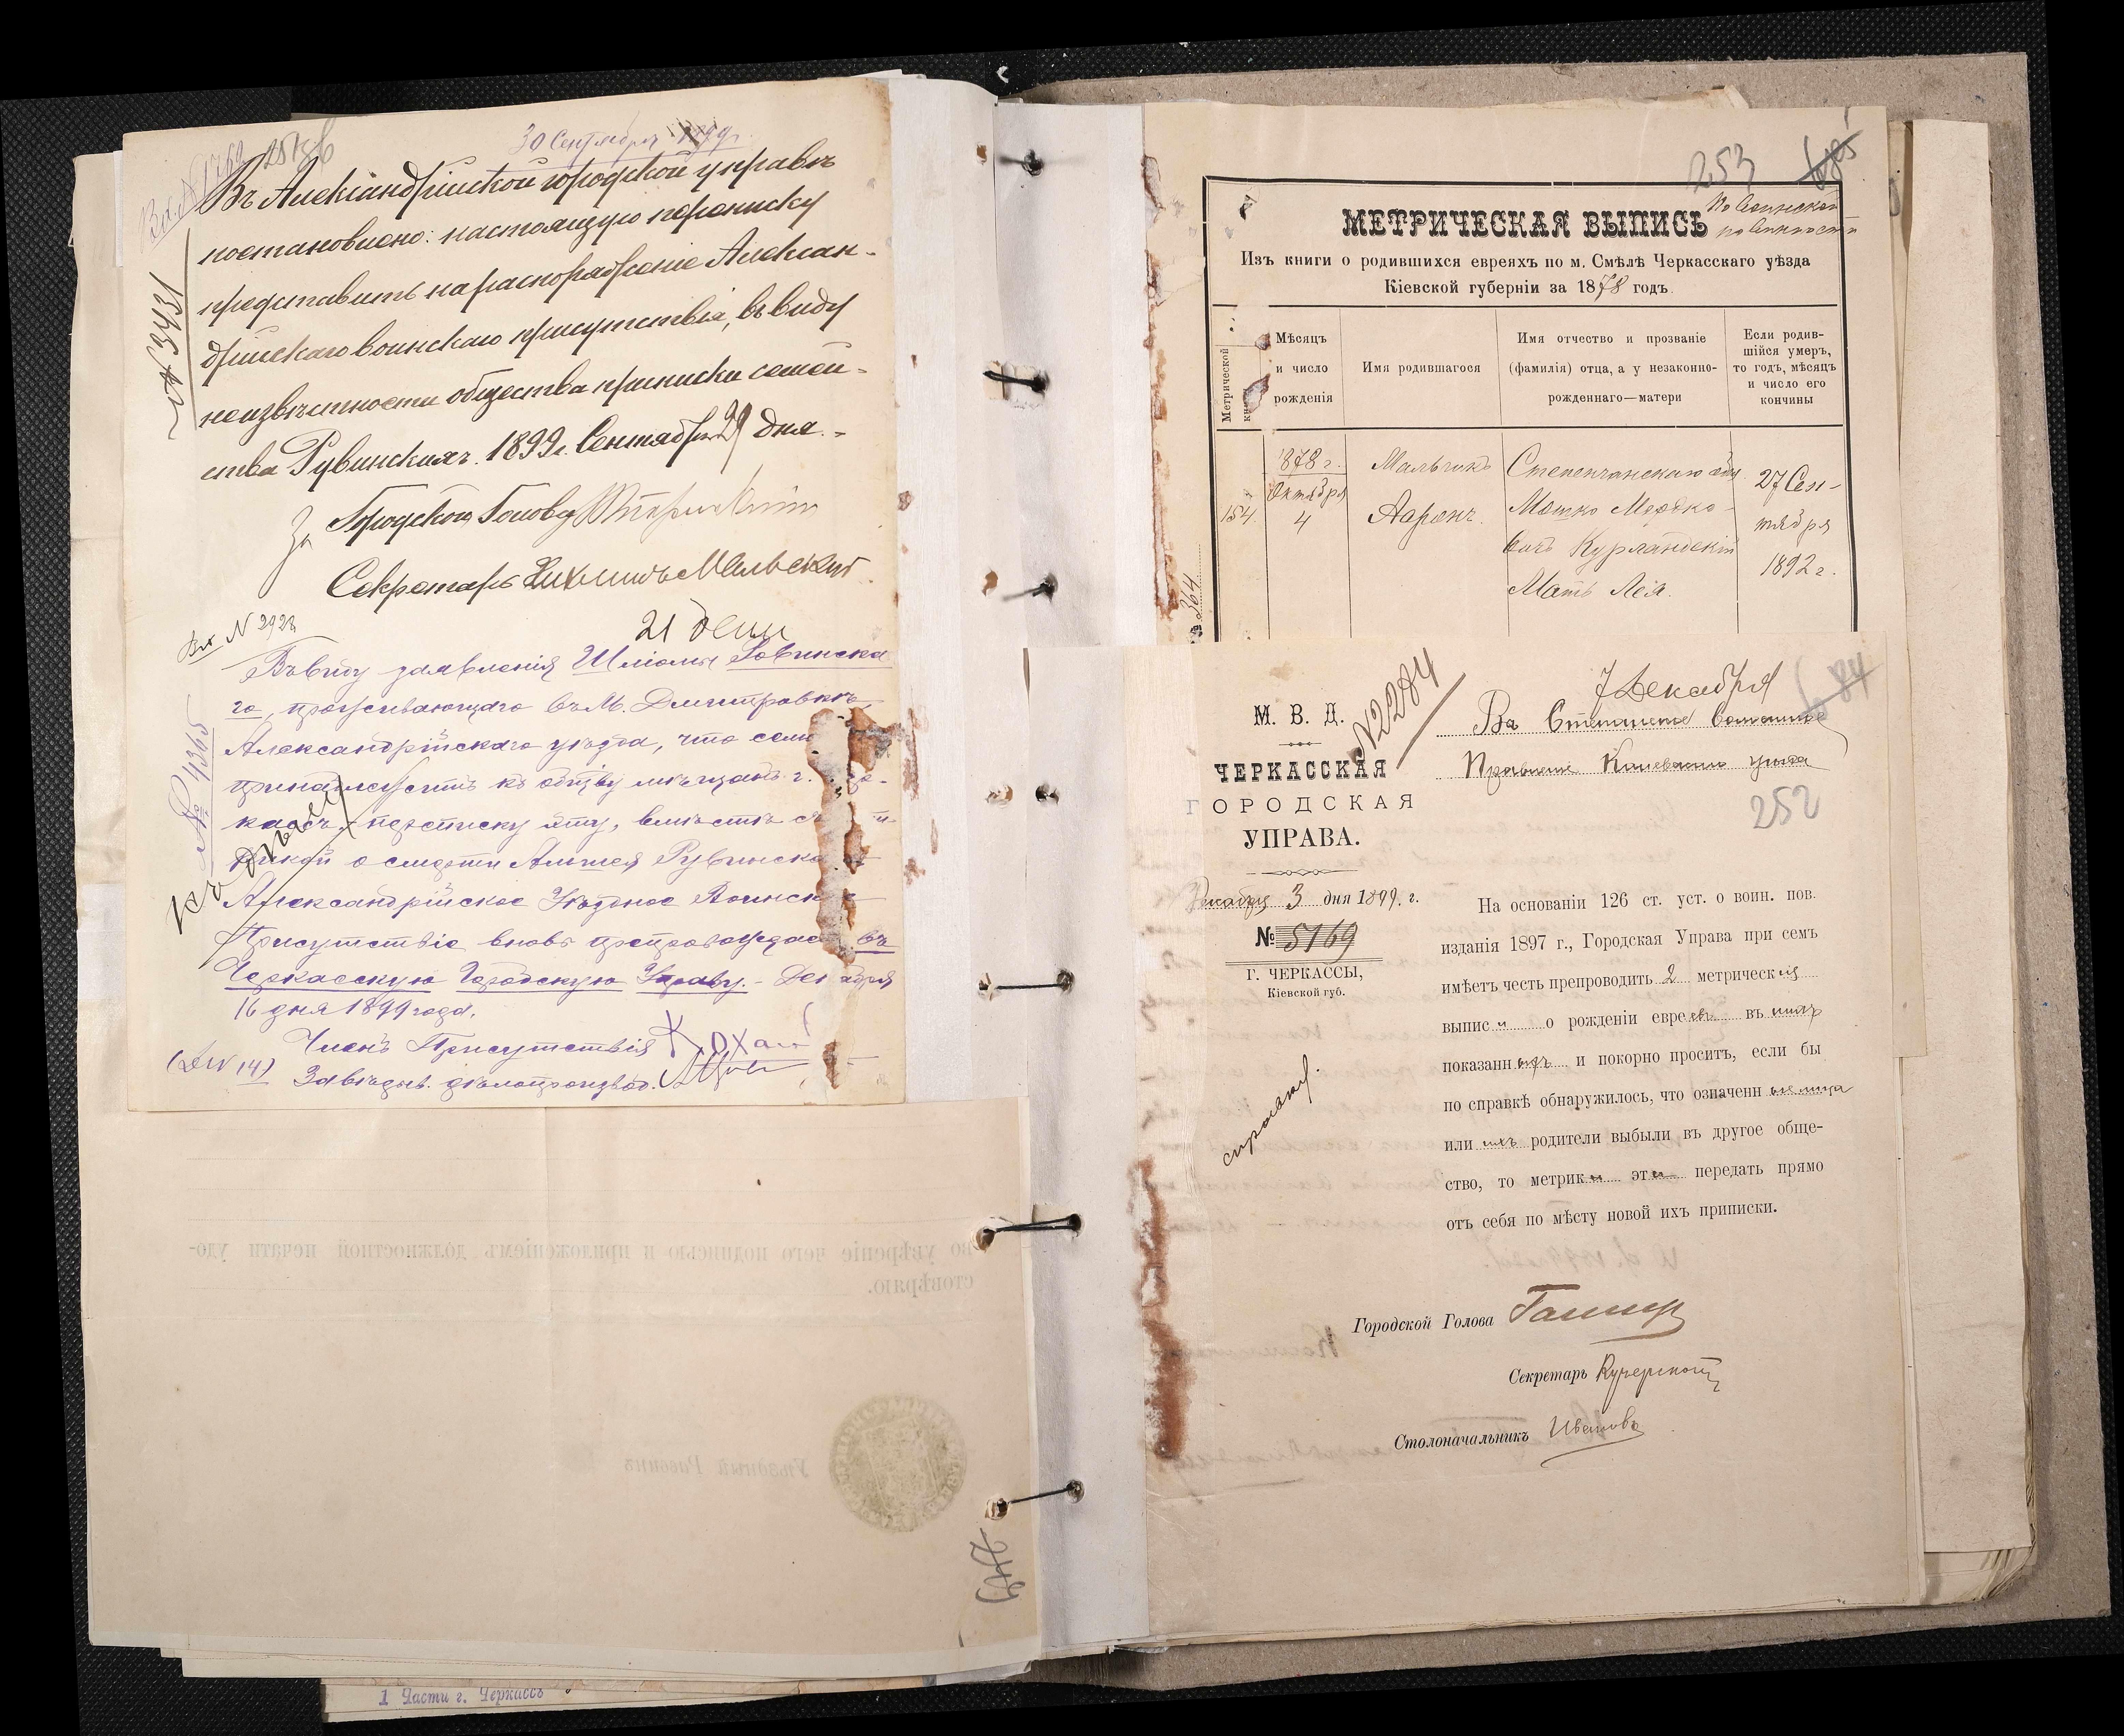 30 Сентября 1899 г.
Въ Александрійской городской управѣ
постановлено: настоящую переписку
представить на распоряженіе Алексан-
дрійскаго воинскаго присутствія, въ виду
неизвѣстности общества приписки семей-
ства Рувинскихъ. 1899 г. Сентября 29 дня.
№ 3431
За Городской Голова
Секретарь
21 Дек
Вх № 2928
Въ виду заявленія Шліомы Ровинска
го, проживающаго въ М. Дмитровкѣ,
Александрійскаго уѣзда, что семья
принадлежитъ къ общ'ву мѣщанъ г.
кассъ, переписку эту, вмѣстѣ съ
о смерти Рувинска
Александрійское Уѣздное Воинск
Присутствіе вновь препровождает въ
Черкасскую Городскую Управу. - Дек абря
16 дня 1899 года.
№ 4365
Къ дѣлу
Членъ Присутствія
Завѣдыв. дѣлопроизвод.
(Дѣл 14)
во увѣреніе чего подписью и приложеніемъ должностной печати удо-
стовѣряю.
Уѣздный Раввинъ
1 Части г. Черкассъ
253
МЕТРИЧЕСКАЯ ВЫПИСЬ
По воинской
повинности
Изъ книги о родившихся евреяхъ по м. Смѣлѣ Черкасскаго уѣзда
Кіевской губерніи за 1878 годъ
Метрической
кн
Мѣсяцъ
и число
рожденія
Имя родившагося
Имя отчество и прозваніе
(фамилія) отца, а у незаконно-
рожденнаго—матери
Если родив-
шійся умеръ,
то годъ, мѣсяцъ
и число его
кончины
154
1878 г.
Октября
4
Мальчикъ
Ааронъ.
Степенчанскаго общ
Мошко Мошко-
вичъ Курляндскій
Мать Лея.
27 Сен-
тября
1892 г.
364
7 Декабря
84
№ 2284
М. В. Д.
ЧЕРКАССКАЯ
ГОРОДСКАЯ
УПРАВА.
Въ Степанецкое Волостное
Правленіе Каневскаго уѣзда
252
Декабря 3 дня 1899. г.
№ 5169
Г. ЧЕРКАССЫ,
Кіевской губ.
На основаніи 126 ст. уст. о воин. пов.
изданія 1897 г., Городская Управа при семъ
имѣетъ честь препроводить 2 метрическія
выписи о рожденіи евреевъ въ нихъ
показанныхъ и покорно проситъ, если бы
по справкѣ обнаружилось, что означенныя лица
или ихъ родители выбыли въ другое обще-
ство, то метрики эти передать прямо
отъ себя по мѣсту новой ихъ приписки.
Городской Голова
Секретарь
Столоначальникъ Ивановъ